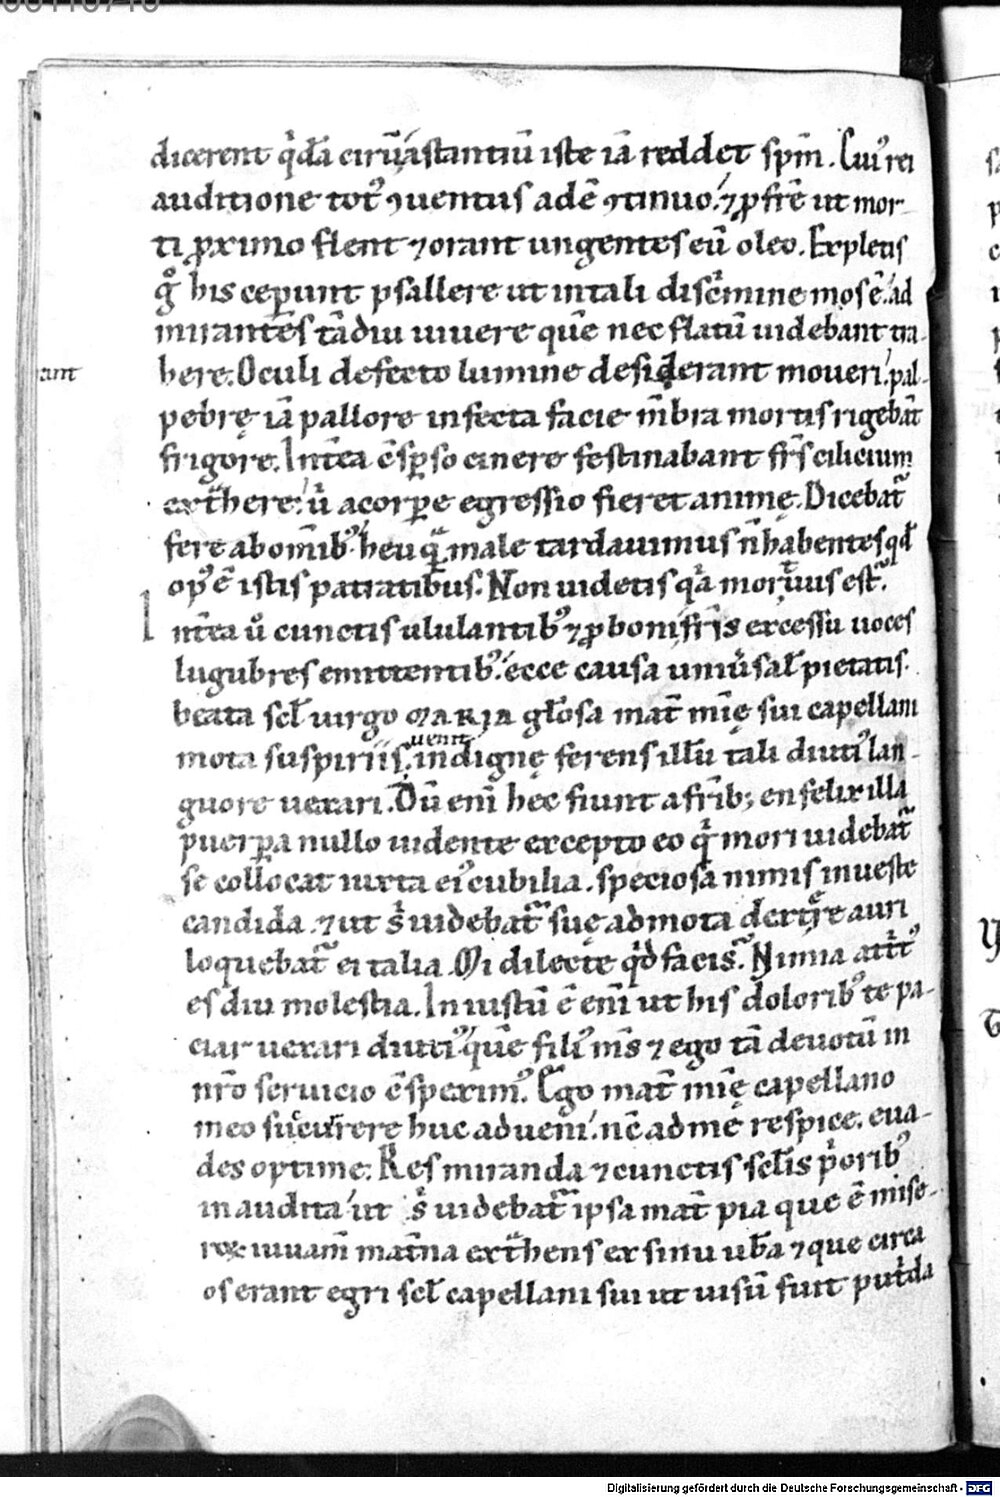 dicerent q̇dā cirū́astantiū iste iā reddet spm̄. Cuiꝰ rei
auditione totꝰ ꝯuentus adē ꝯtinuo. ⁊ ꝓ frē ut mor-
ti ꝓximo flent ⁊ orant ungentes eū oleo. Expletis
gͦ his ceperunt psallere ut in tali discͥmine mos ē. ad
mirantes tādiu uiuere quē nec flatū uidebant tra-
here. Oculi defecto lumine desiderant moueri. pal-
pebrę iā pallore infecta facie mēbra mortis rigebāt
frigore. Intea ꝯsꝑso cinere festinabant frs̄ cilicium
extͣhere. uͥ a corꝑe egressio fieret animę. Dicebatͬ
fere ab omībꝰ. heu qͣm male tardauimus n̄ habentes qd̄
opꝰ ē istis patratibus. Non uidetis qͣ mortuus estͬ.
Intea uͦ cunctis ululantibꝰ ⁊ ꝓ boni frīs excessu uoces
lugubres emittentibꝰ. ecce causa uniuͥsal pietatis.
beata scł uirgo MARIA głosa mat̄ mīę sui capellani
mota suspiriis. uenit indignę ferens illū tali diutiꝰ lan-
guore uexari. Dū enī hec fiunt a frib; en felix illa
puerꝑa nullo uidente excepto eo qͥ mori uidebatͬ
se collocat iuxta eiꝰ cubilia. speciosa nimis in ueste
candida. ⁊ ut sͥ uidebatͬ suę admota dextͤre auri
loquebatͬ ei talia. Mi dilecte qͥd facis. Nimia attͥtꝰ
es diu molestia. Iniustū ē enī ut his doloribꝰ te pa-
ciar uexari diutiꝰ. quē filiꝰ ms̄ ⁊ ego tā deuotū in
nrō seruicio ꝯspeximꝰ. Ego mat̄ mīę capellano
meo sucͨurrere huc adueni. nc̄ ad me respice. eua-
des optime. Res miranda ⁊ cunctis sclīs pͥoribꝰ
inaudita. ut sͥ uidebatͬ ipsa mat̄ pia que ē mise-
rox iuuam̄ mat̄na extͣhens ex sinu ub̄a ⁊ que circa
os erant egri scł capellani sui ut uisū fuit putͥda
ant